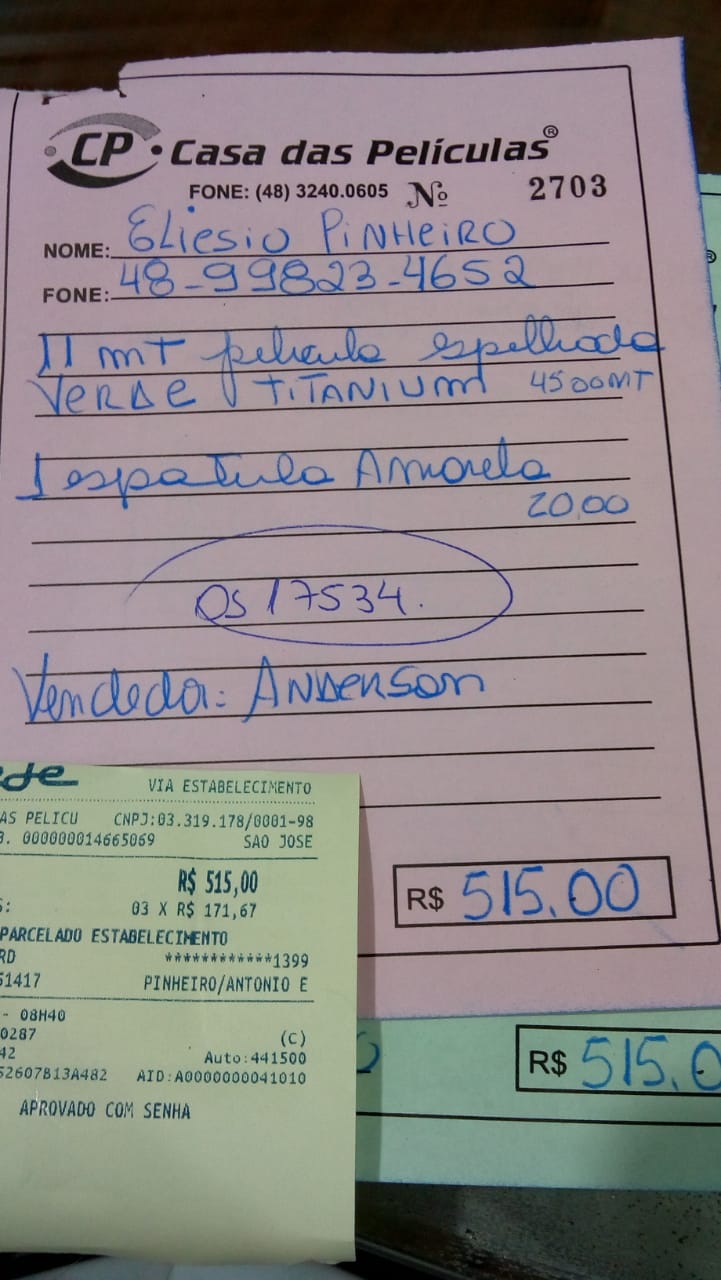 CP • Casa das Películas®
FONE: (48) 3240.0605 Nº 2703
NOME: Eliesio Pinheiro
FONE: 48-99823-4652
11 mt pelicula espelhada
Verde titanium 45,00MT
1 espatula Amarela
20,00
OS 17534.
Vendedor: Anderson
R$ 515.00
VIA ESTABELECIMENTO
AS PELICU CNPJ:03.319.178/0001-98
. 000000014665069 SAO JOSE
R$ 515,00
03 X R$ 171,67
PARCELADO ESTABELECIMENTO
RD ************1399
1417 PINHEIRO/ANTONIO E
- 08H40
0287 (C)
42 Auto:441500
52607B13A482 AID:A0000000041010
APROVADO COM SENHA
R$ 515.0